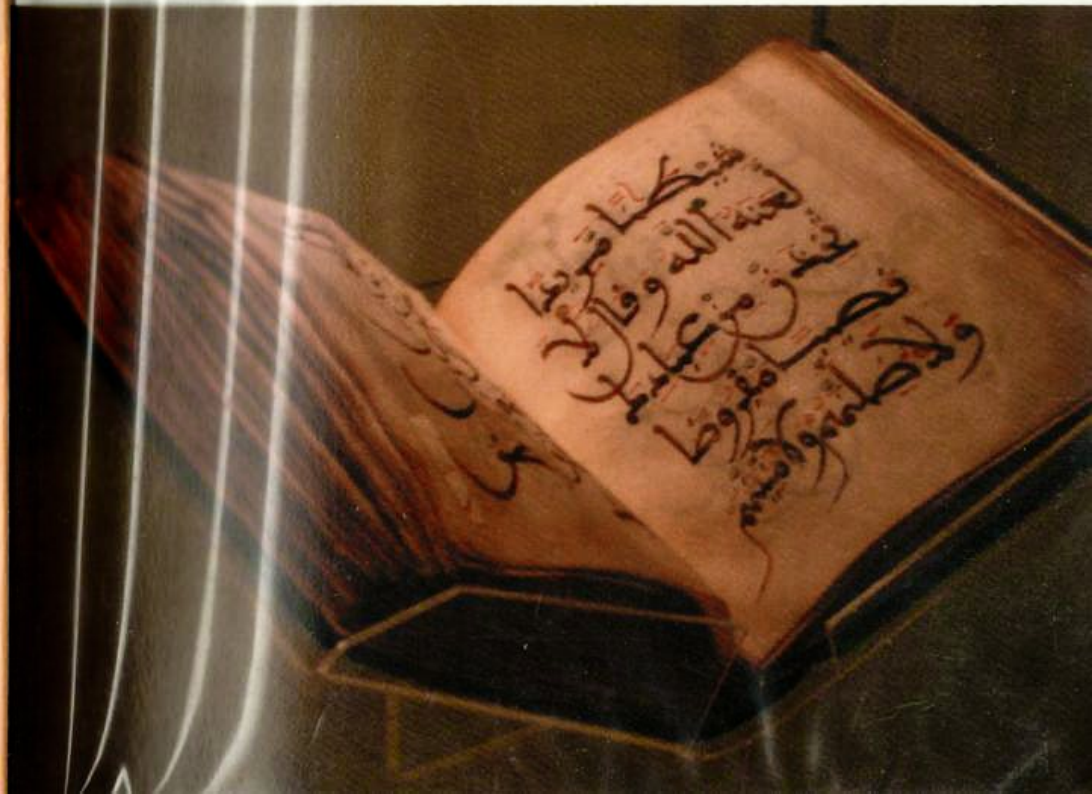 شيطنا مريدا
لعنه الله وقال لا
تخذن من عبادك
نصيبا مفروضا
ولأضلنهم ولأمنينهم